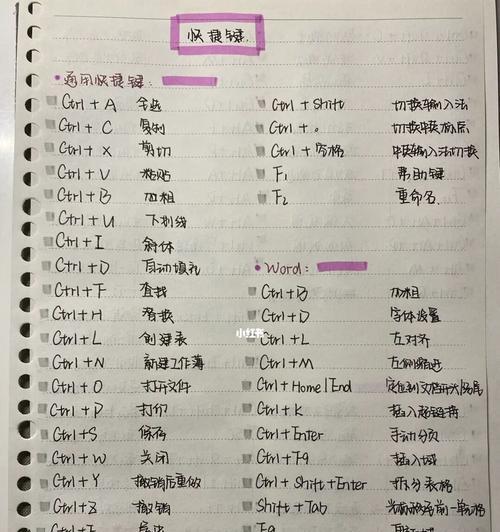 快捷键
通用快捷键:
Ctrl + A 全选
Ctrl + C 复制
Ctrl + X 剪切
Ctrl + V 粘贴
Ctrl + B 加粗
Ctrl + U 下划线
Ctrl + I 斜体
Ctrl + D 自动填充
Ctrl + F 查找
Ctrl + H 替换
Ctrl + L 创建表
Ctrl + N 新建工作薄
Ctrl + O 打开文件
Ctrl + P 打印
Ctrl + S 保存
Ctrl + W 关闭
Ctrl + Y 撤销后重做
Ctrl + Z 撤销
Ctrl + Shift 切换输入法
Ctrl + 。
Ctrl + 空格 输入法切换
F1 帮助键
F2 重命名
Word:
Ctrl + B 加粗
Ctrl + D 字体设置
Ctrl + L 左对齐
Ctrl + M 左侧缩进
Ctrl + Home | End 定位到文档开头/
Ctrl + K 插入超链接
Ctrl + Enter 手动分页
Ctrl + F9 插入域
Ctrl + Shift + Enter 拆分表格
Shift + Tab 前一单元格
F9
小红书